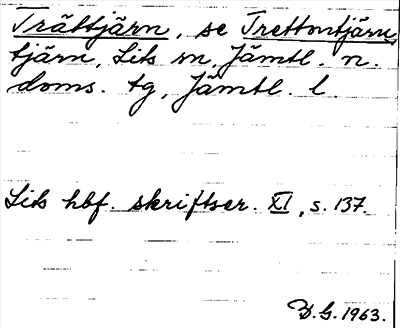 Trättjärn, se Trettontjärn,
tjärn, Lits sn, Jämtl. n.
doms. tg, Jämtl. l.
Lits hbf. skriftser. XI, s. 137.
B.G. 1963.